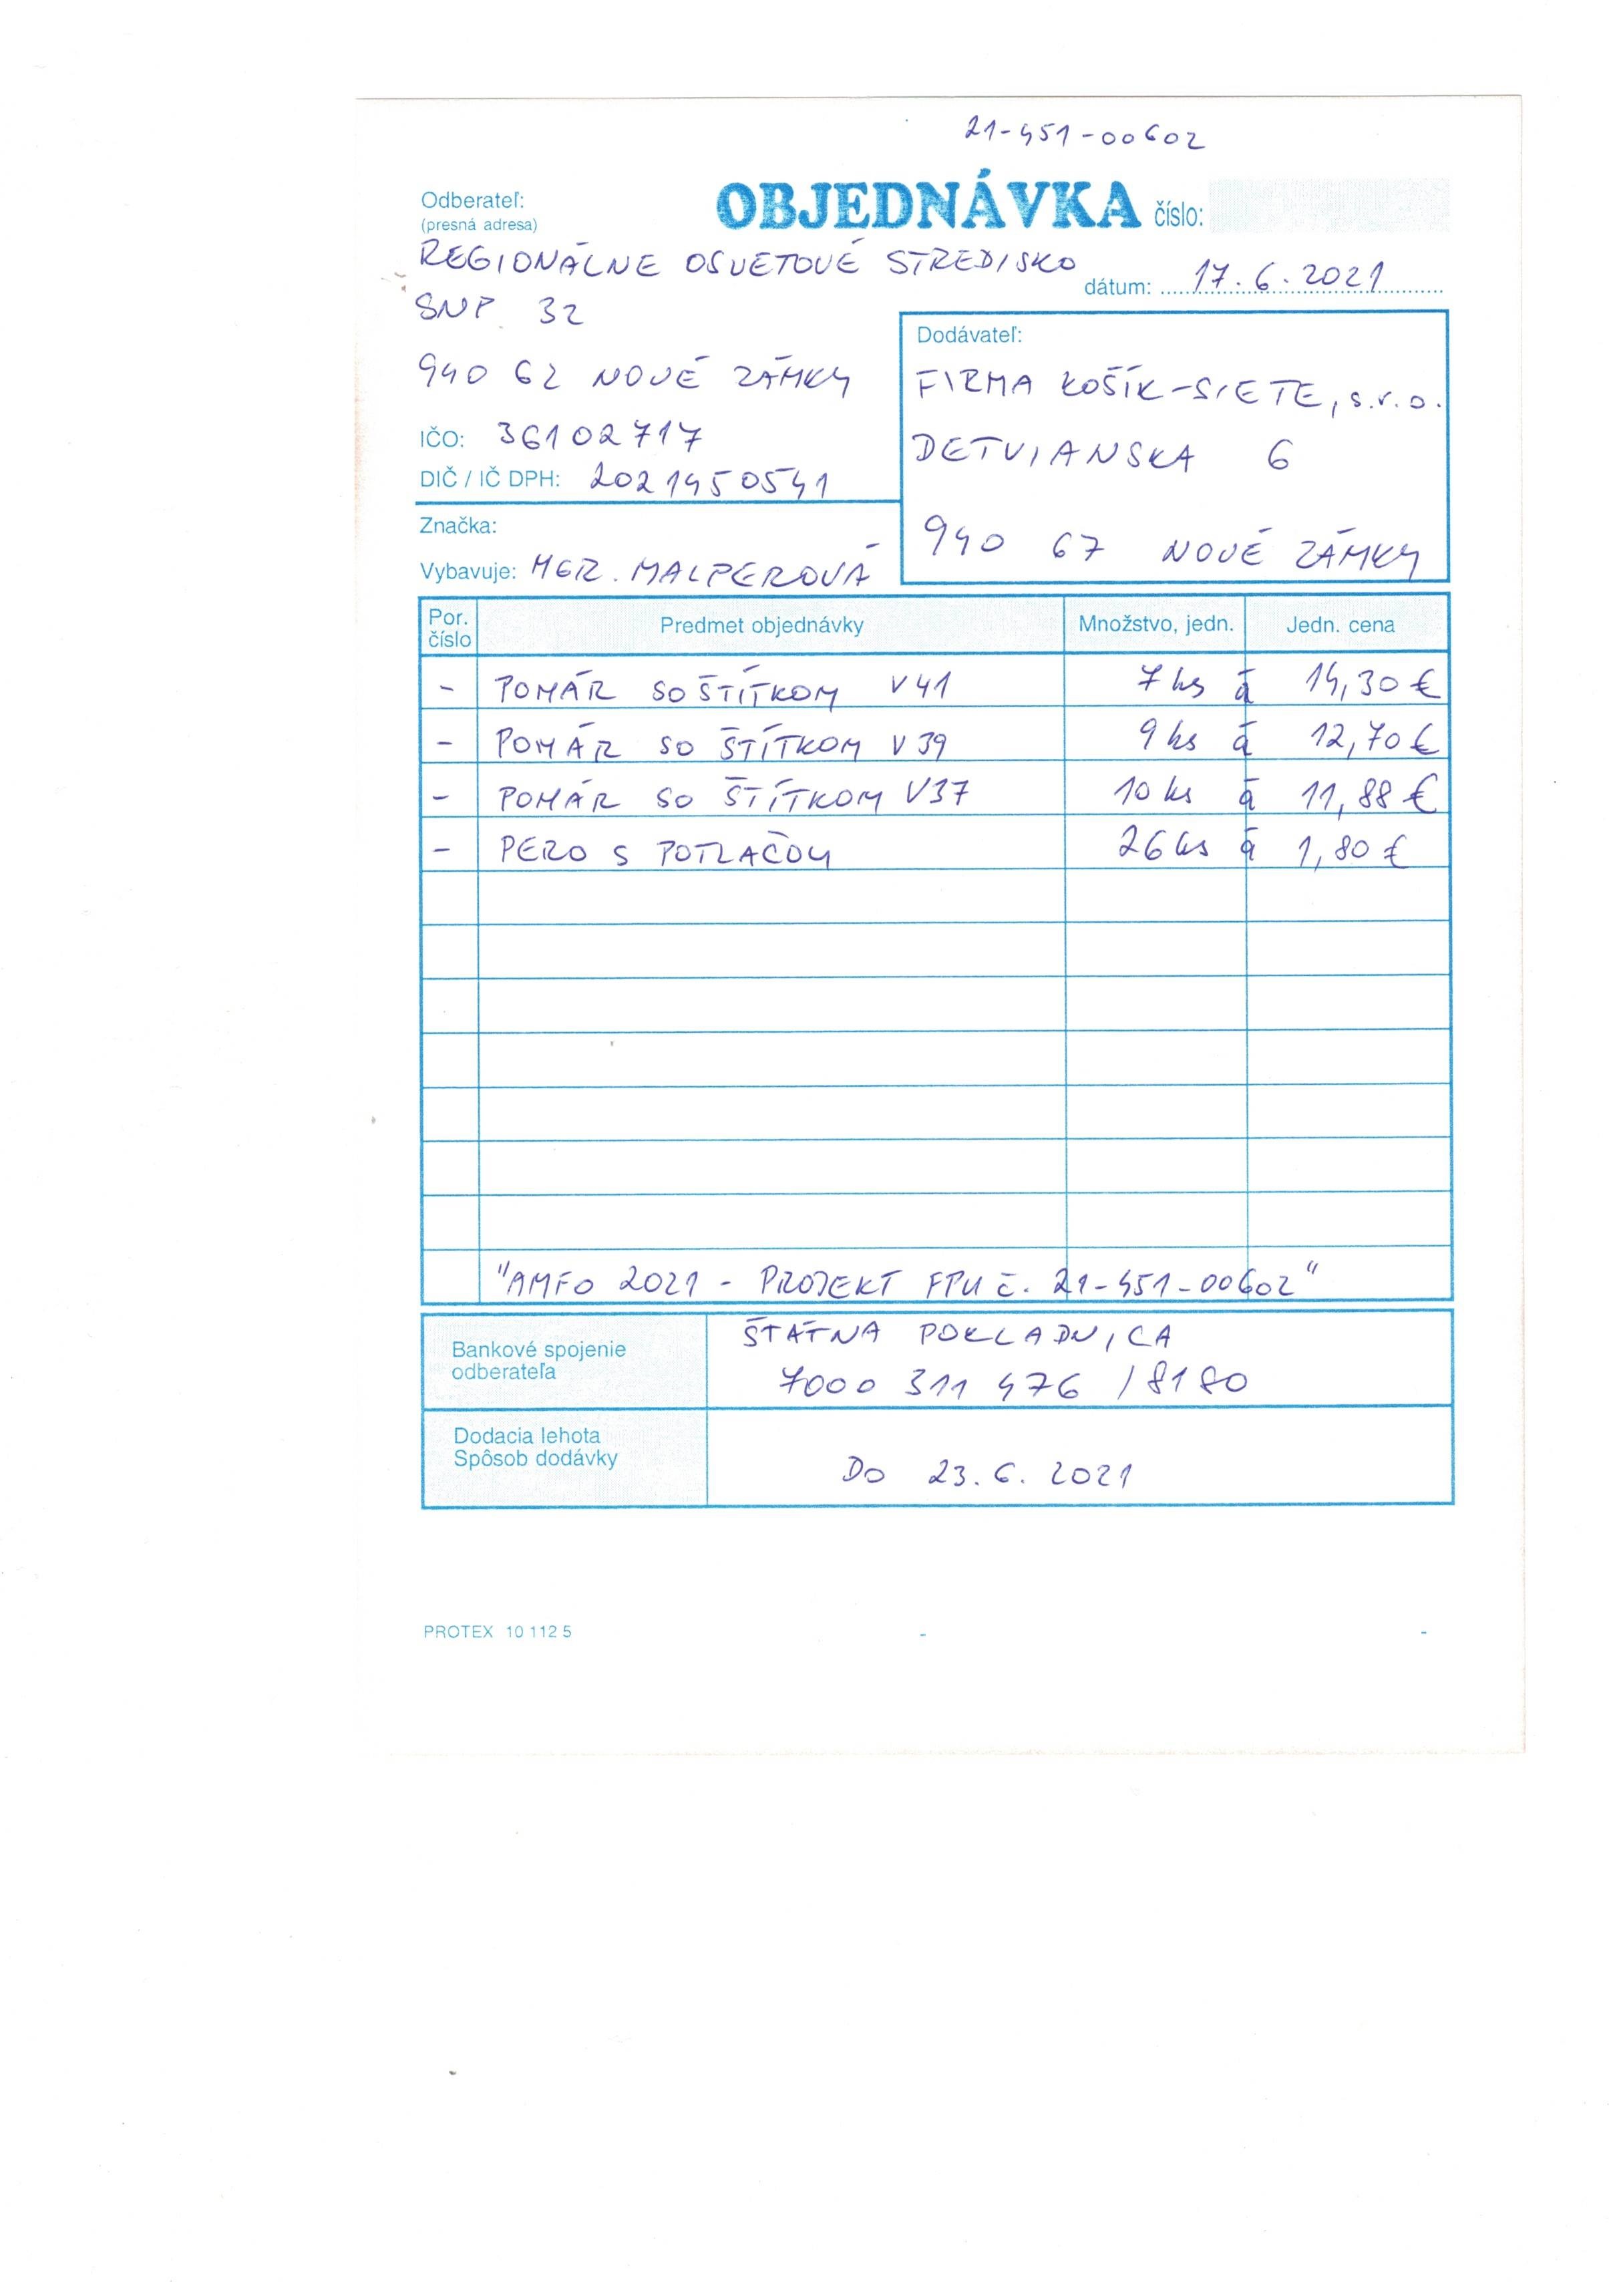 21-451-00602
Odberateľ:
(presná adresa)
OBJEDNÁVKA číslo:
REGIONÁLNE OSVETOVÉ STREDISKO
dátum: 17.6.2021
SNP 32
940 62 NOVÉ ZÁMKY
IČO: 36102717
DIČ / IČ DPH: 2021450541
Značka:
Vybavuje: MGR. MALPEROVÁ
Dodávateľ:
FIRMA KOŠÍK-SIETE, s.r.o.
DETVIANSKA 6
940 67 NOVÉ ZÁMKY
Por. číslo Predmet objednávky Množstvo, jedn. Jedn. cena
- POHÁR SO ŠTÍTKOM V41 7 ks á 14,30 €
- POHÁR SO ŠTÍTKOM V39 9 ks á 12,70 €
- POHÁR SO ŠTÍTKOM V37 10 ks á 11,88 €
- PERO S POTLAČOM 26 ks á 1,80 €
"AMFO 2021 - PROJEKT FPU č. 21-451-00602"
Bankové spojenie
odberateľa
ŠTÁTNA POKLADNICA
7000 311 476 / 8180
Dodacia lehota
Spôsob dodávky
DO 23.6.2021
PROTEX 10 112 5